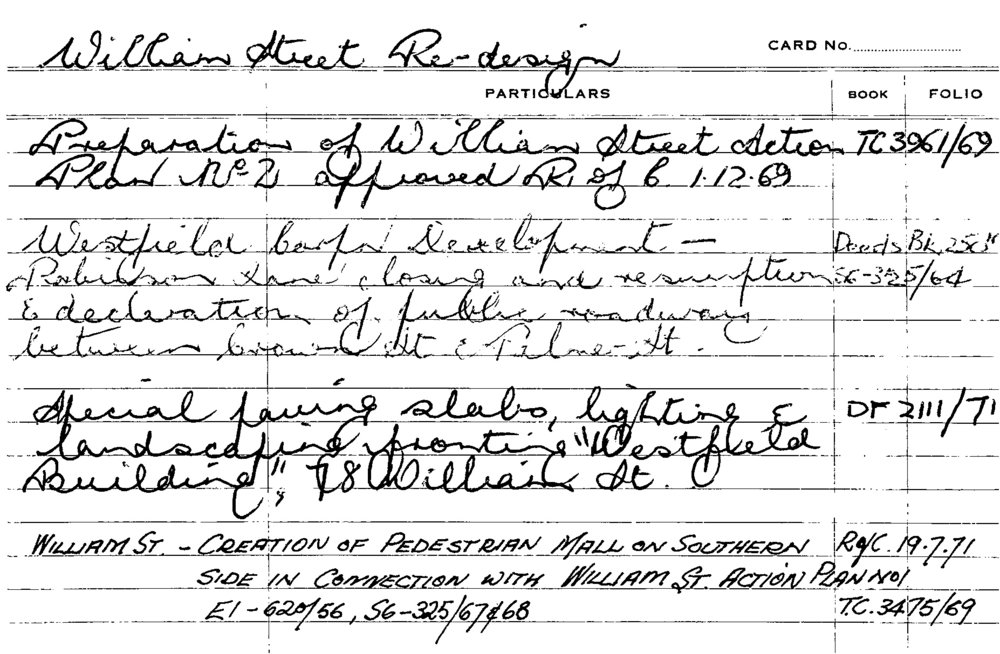 William Street Re-design CARD No.
PARTICULARS BOOK FOLIO
Preparation of William Street Action TC 3961/69
Plan No 2 approved R. of C. 1.12.69
Westfield Corpn Development — Deeds Bk
Robinson Lane closing and resumption S6-325/64
& declaration of public roadway
between Crown St & Palmer St.
Special paving slabs, lighting & DF 2111/71
landscaping fronting "Westfield
Building", 78 William St.
WILLIAM ST. - CREATION OF PEDESTRIAN MALL ON SOUTHERN R of C. 19.7.71
SIDE IN CONNECTION WITH WILLIAM ST. ACTION PLAN NO 1
E1-620/56, S6-325/67 & 68 T.C. 3475/69